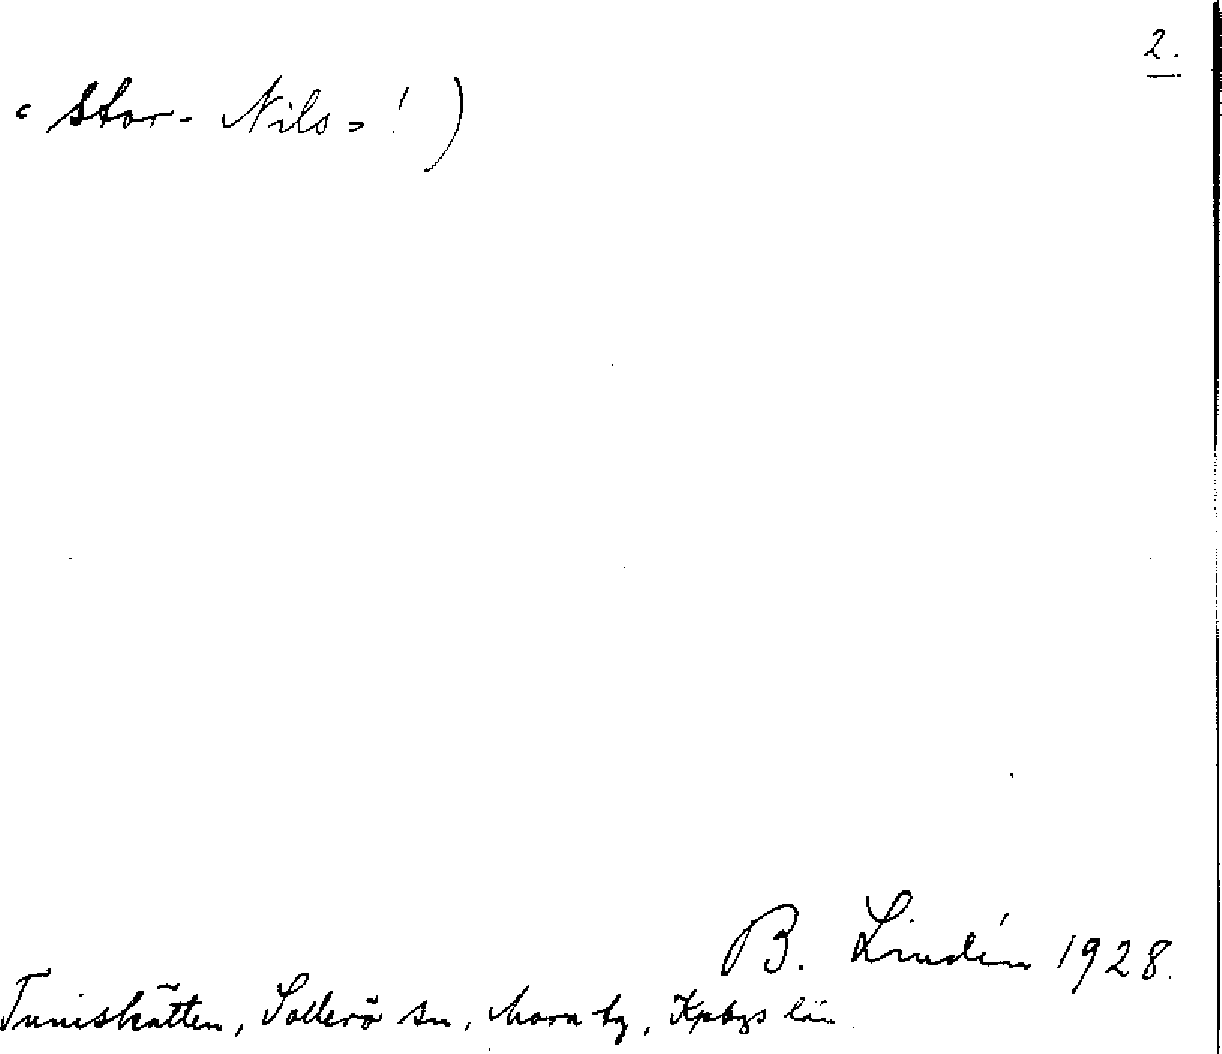 2.
"Stor-Nils"!)
B. Lindén 1928.
Tuniskätten, Sollerö sn, Mora tg, Kpbgs län